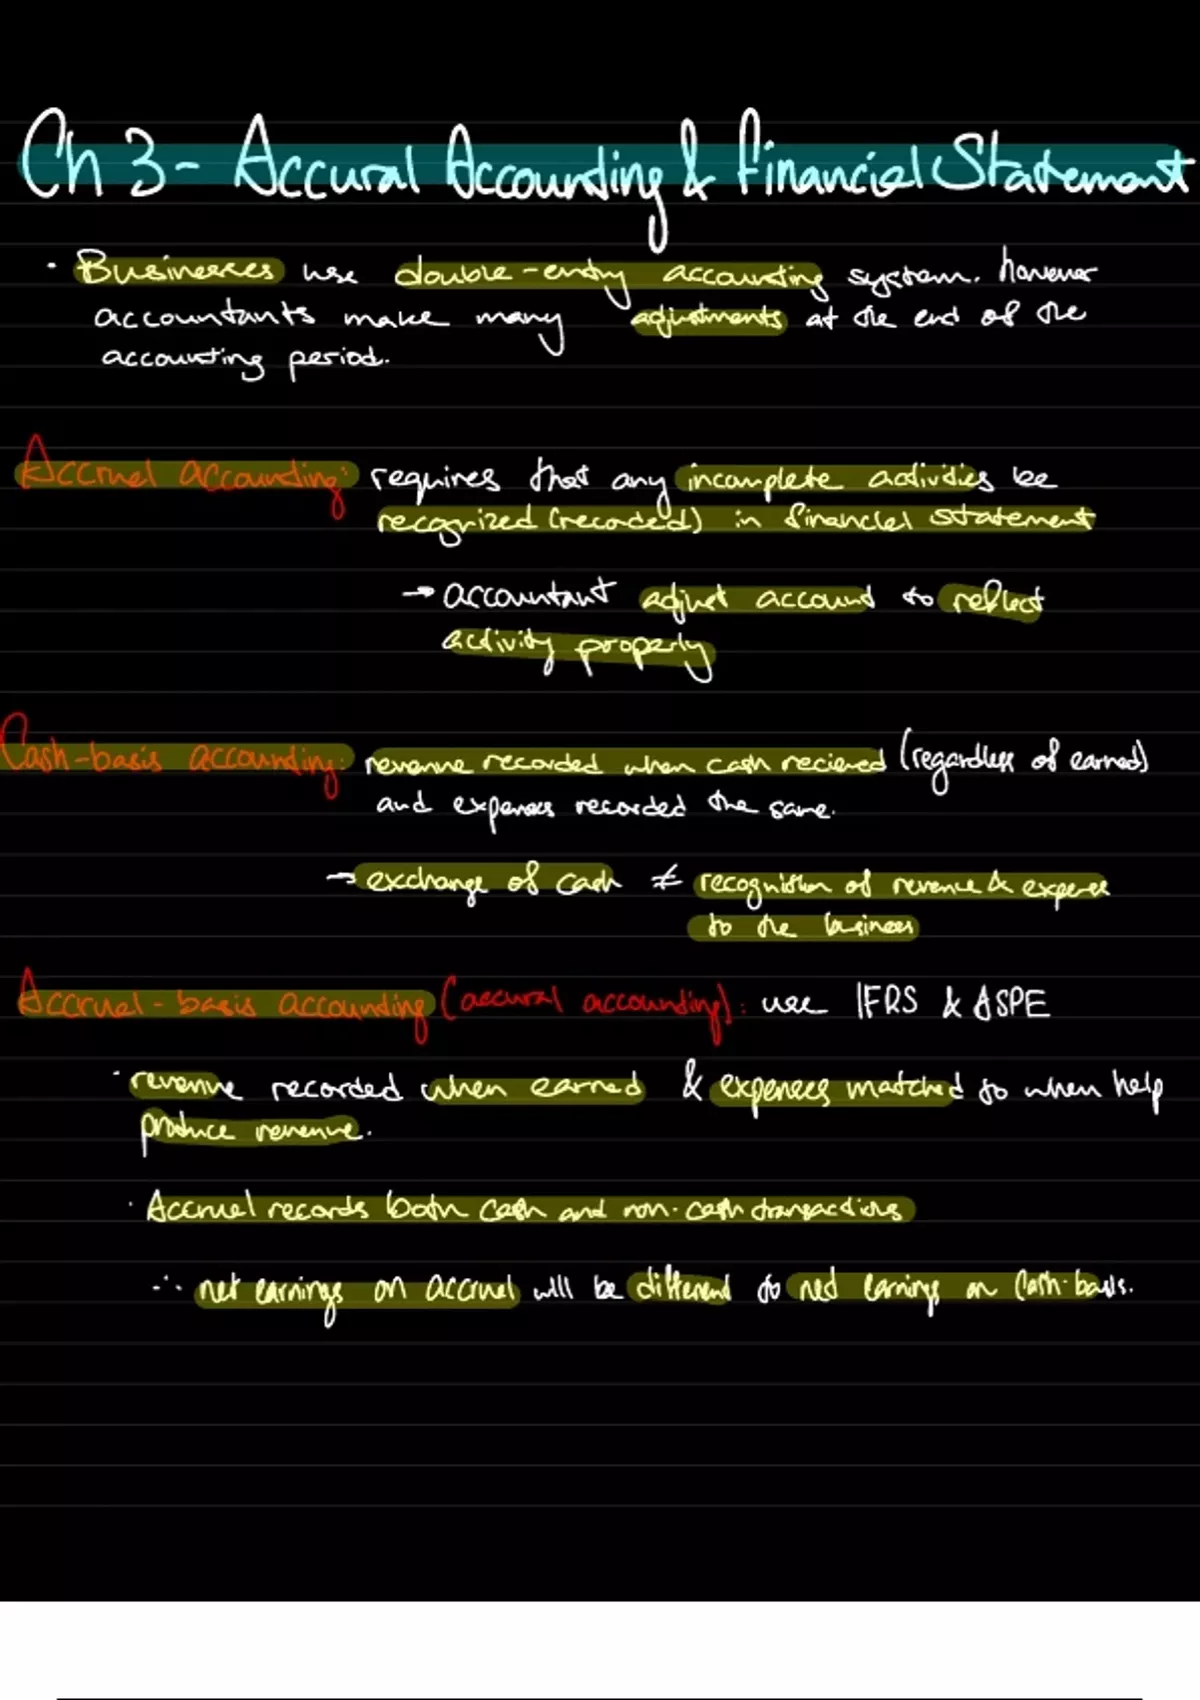 Ch 3 - Accural Accounting & Financial Statement
· Businesses use double-entry accounting system. however
accountants make many adjustments at the end of the
accounting period.
Accrual accounting: requires that any incomplete activities be
recognized (recorded) in financial statement
→ accountant adjust account to reflect
activity properly
Cash-basis accounting: revenue recorded when cash recieved (regardless of earned)
and expenses recorded the same.
→ exchange of cash ≠ recognition of revenue & expense
to the business
Accrual-basis accounting (accural accounting): use IFRS & ASPE
· revenue recorded when earned & expenses matched to when help
produce revenue.
· Accrual records both cash and non-cash transactions
∴ net earnings on accrual will be different to net earnings on Cash-basis.